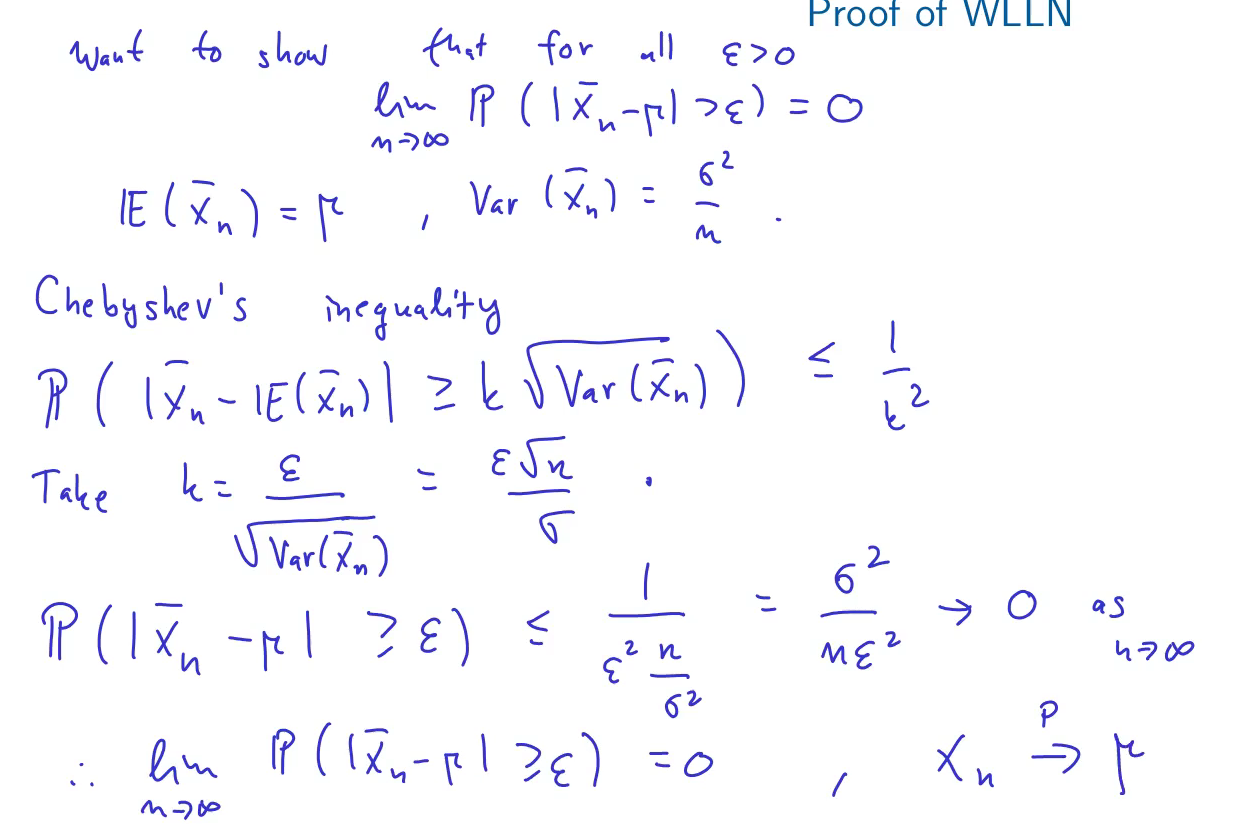 Proof of WLLN
Want to show that for all ε>0
lim n→∞ ℙ(|X̄ₙ-μ|>ε) = 0
𝔼(X̄ₙ) = μ , Var(X̄ₙ) = σ²/n .
Chebyshev's inequality
ℙ(|X̄ₙ - 𝔼(X̄ₙ)| ≥ k√Var(X̄ₙ)) ≤ 1/k²
Take k = ε/√Var(X̄ₙ) = ε√n/σ .
ℙ(|X̄ₙ - μ| ≥ ε) ≤ 1/(ε² n/σ²) = σ²/(nε²) → 0 as n→∞
∴ lim n→∞ ℙ(|X̄ₙ-μ| ≥ε) = 0 , Xₙ →ᴾ μ